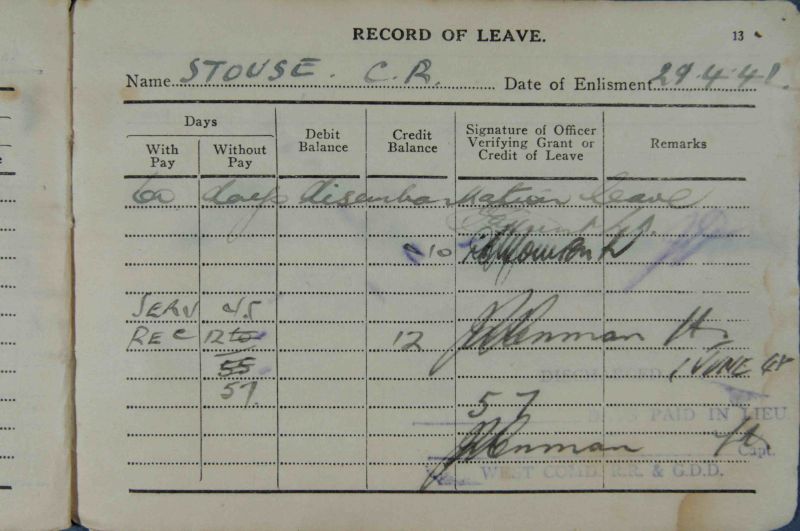 RECORD OF LEAVE. 13
Name STOUSE. C.R. Date of Enlisment 29.4.41.
Days
With Pay Without Pay Debit Balance Credit Balance Signature of Officer Verifying Grant or Credit of Leave Remarks
60 days disembarkation leave
10
SERV 45
REC 12 12
55 DISCHARGED 1 JUNE 48
57
57 DAYS PAID IN LIEU
Capt.
WEST COMD. R.R. & G.D.D.